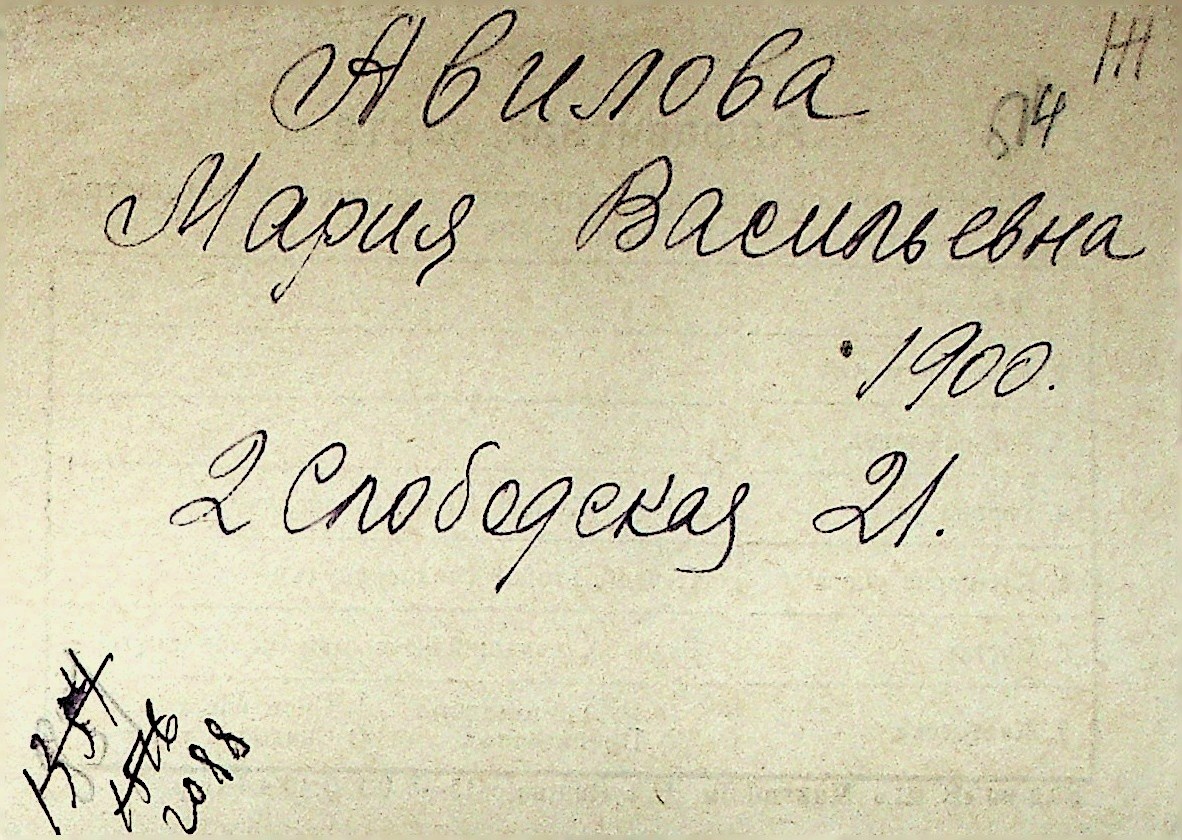 Авилова
Мария Васильевна
1900.
2 Слободская 21.
2088